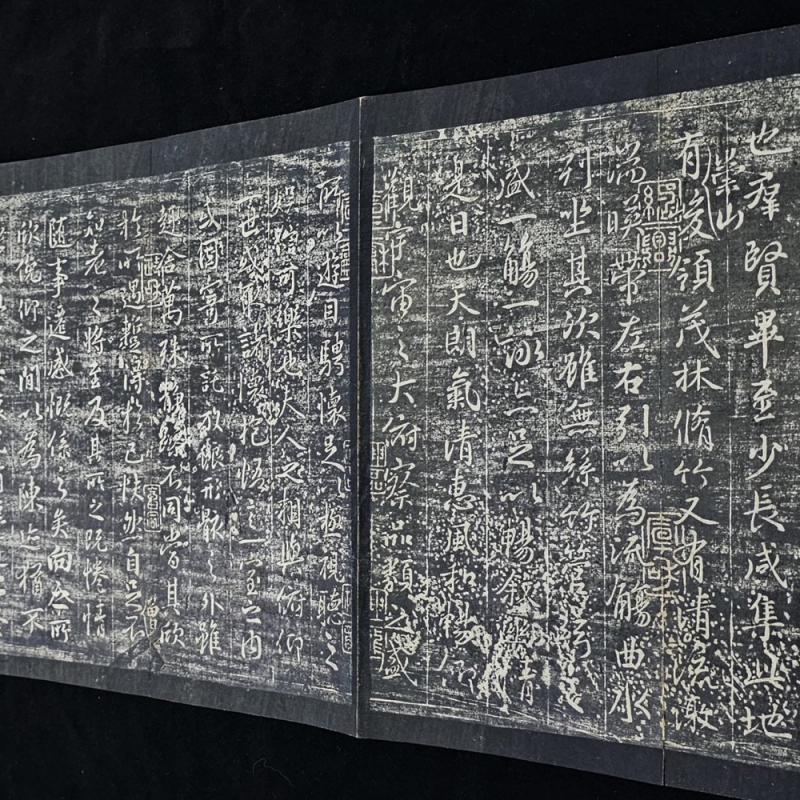 也羣賢畢至少長咸集此地
有崇山峻領茂林脩竹又有清流激
湍暎帶左右引以為流觴曲水
列坐其次雖無絲竹管弦之
盛一觴一詠亦足以暢敘幽情
是日也天朗氣清惠風和暢仰
觀宇宙之大俯察品類之盛
所以遊目騁懷足以極視聽之
娛信可樂也夫人之相與俯仰
一世或取諸懷抱悟言一室之內
或因寄所託放浪形骸之外雖
趣舍萬殊靜躁不同當其欣
於所遇暫得於己快然自足不
知老之將至及其所之既惓情
隨事遷感慨係之矣向之所
欣俛仰之間以為陳迹猶不